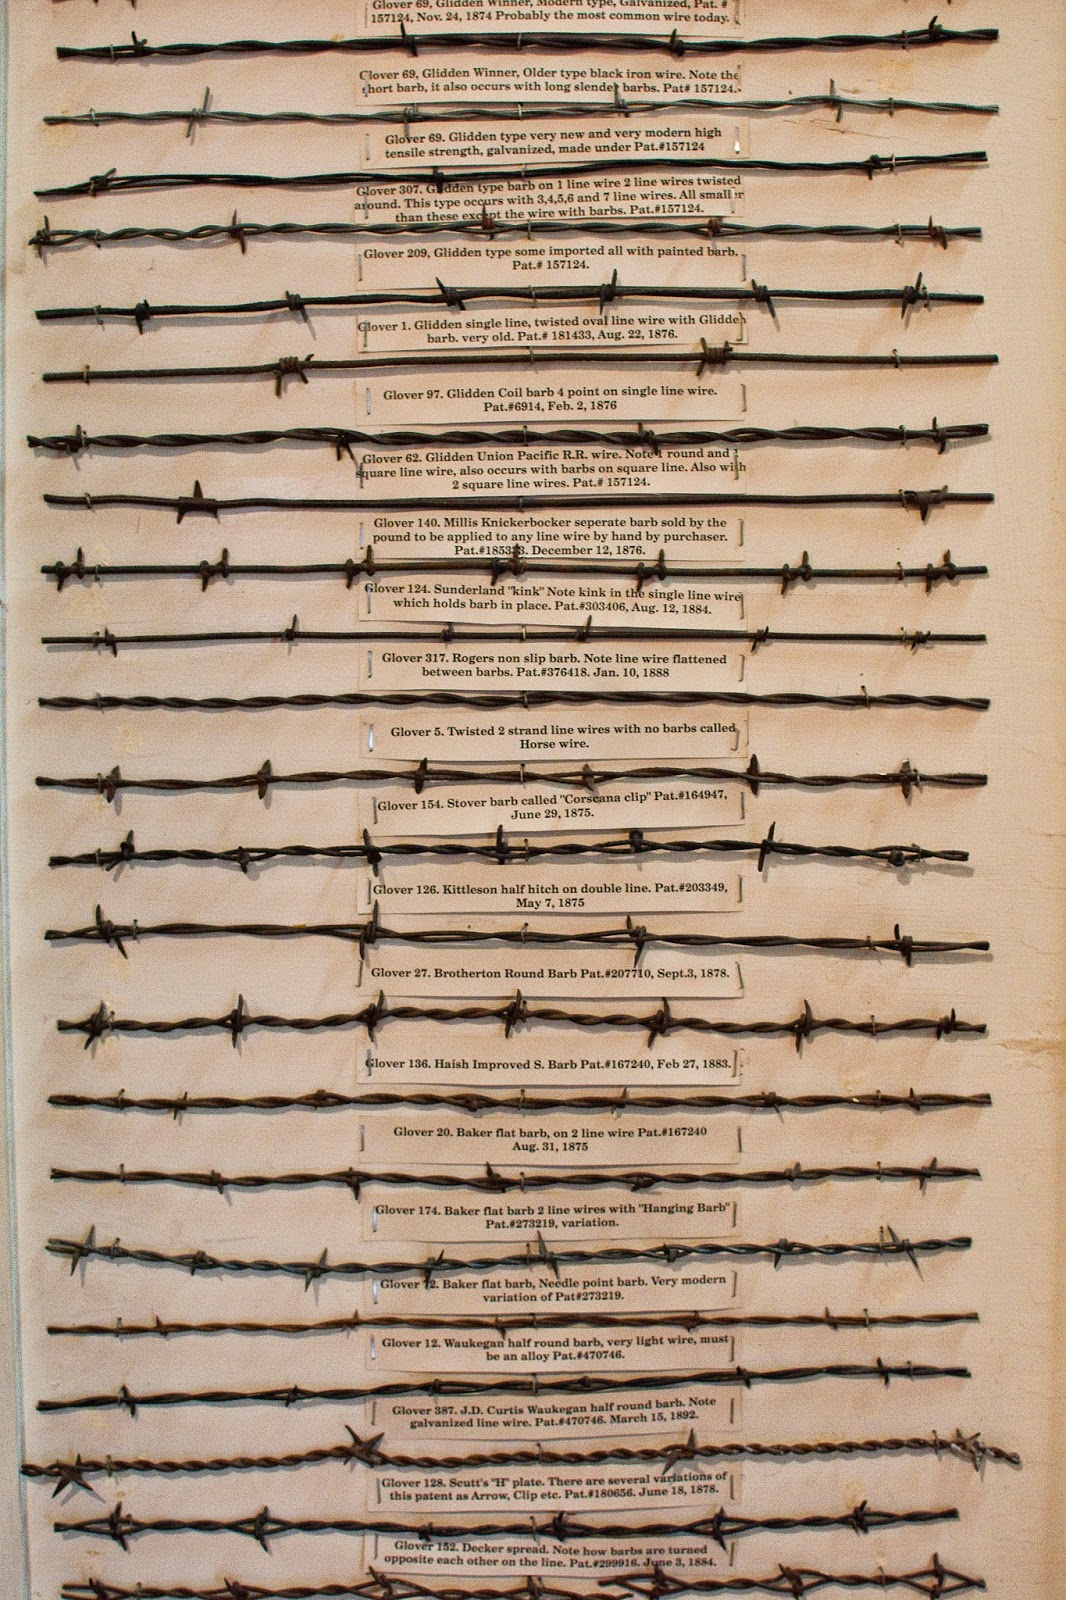 Glover 69, Glidden Winner, Modern type, Galvanized, Pat. #
157124, Nov. 24, 1874 Probably the most common wire today.
Glover 69, Glidden Winner, Older type black iron wire. Note the
short barb, it also occurs with long slender barbs. Pat# 157124.
Glover 69. Glidden type very new and very modern high
tensile strength, galvanized, made under Pat.#157124
Glover 307. Glidden type barb on 1 line wire 2 line wires twisted
around. This type occurs with 3,4,5,6 and 7 line wires. All smaller
than these except the wire with barbs. Pat.#157124.
Glover 209, Glidden type some imported all with painted barb.
Pat.# 157124.
Glover 1. Glidden single line, twisted oval line wire with Glidden
barb. very old. Pat.# 181433, Aug. 22, 1876.
Glover 97. Glidden Coil barb 4 point on single line wire.
Pat.#6914, Feb. 2, 1876
Glover 62. Glidden Union Pacific R.R. wire. Note 1 round and 1
square line wire, also occurs with barbs on square line. Also with
2 square line wires. Pat.# 157124.
Glover 140. Millis Knickerbocker seperate barb sold by the
pound to be applied to any line wire by hand by purchaser.
December 12, 1876.
Glover 124. Sunderland "kink" Note kink in the single line wire
which holds barb in place. Pat.#303406, Aug. 12, 1884.
Glover 317. Rogers non slip barb. Note line wire flattened
between barbs. Pat.#376418. Jan. 10, 1888
Glover 5. Twisted 2 strand line wires with no barbs called
Horse wire.
Glover 154. Stover barb called "Corsicana clip" Pat.#164947,
June 29, 1875.
Glover 126. Kittleson half hitch on double line. Pat.#203349,
May 7, 1875
Glover 27. Brotherton Round Barb Pat.#207710, Sept.3, 1878.
Glover 136. Haish Improved S. Barb Pat.#167240, Feb 27, 1883.
Glover 20. Baker flat barb, on 2 line wire Pat.#167240
Aug. 31, 1875
Glover 174. Baker flat barb 2 line wires with "Hanging Barb"
Pat.#273219, variation.
Glover 72. Baker flat barb, Needle point barb. Very modern
variation of Pat#273219.
Glover 12. Waukegan half round barb, very light wire, must
be an alloy Pat.#470746.
Glover 387. J.D. Curtis Waukegan half round barb. Note
galvanized line wire. Pat.#470746. March 15, 1892.
Glover 128. Scutt's "H" plate. There are several variations of
this patent as Arrow, Clip etc. Pat.#180656. June 18, 1878.
Glover 152. Decker spread. Note how barbs are turned
opposite each other on the line. Pat.#299916. June 3, 1884.